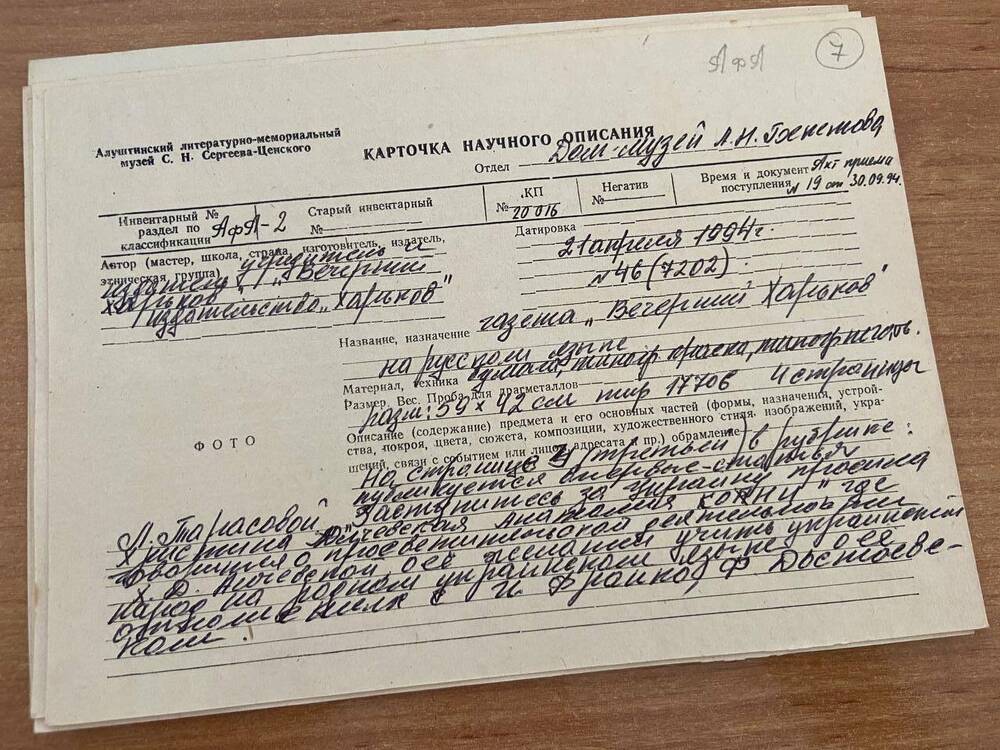 АФА
7
Алуштинский литературно-мемориальный
музей С. Н. Сергеева-Ценского
КАРТОЧКА НАУЧНОГО ОПИСАНИЯ
Отдел Дом-музей А.Н. Бекетова
Инвентарный №
раздел по
классификации АФА-2
Старый инвентарный
№
КП
№ 20016
Негатив
№
Время и документ Акт приема
поступления № 19 от 30.09.94.
Автор (мастер, школа, страна, изготовитель, издатель,
этническая группа) учредитель и
издатель „Вечерний
Харьков"
издательство „Харьков"
Датировка
21 апреля 1994 г.
№ 46 (7202).
Название, назначение газета „Вечерний Харьков"
на русском языке
Материал, техника бумага, типогр. краска, типогр. печать.
Размер. Вес. Проба для драгметаллов
разм: 59 х 42 см тир 17706 4 страницы
Описание (содержание) предмета и его основных частей (формы, назначения, устрой-
ства, покроя, цвета, сюжета, композиции, художественного стиля, изображений, укра-
шений, связи с событием или лицом, адресата и пр.) обрамление
ФОТО
На странице 3 (третьей) в рубрике:
публикуется впервые - статья
Л. Тарасовой „Заступитесь за Украину просила
Христина Алчевская" где
говорится о просветительской деятельности
Х. Д. Алчевской её желании учить украинский
народ на родном украинском языке о её
отношениях с И. Франко, Ф. Достоевс-
ким.